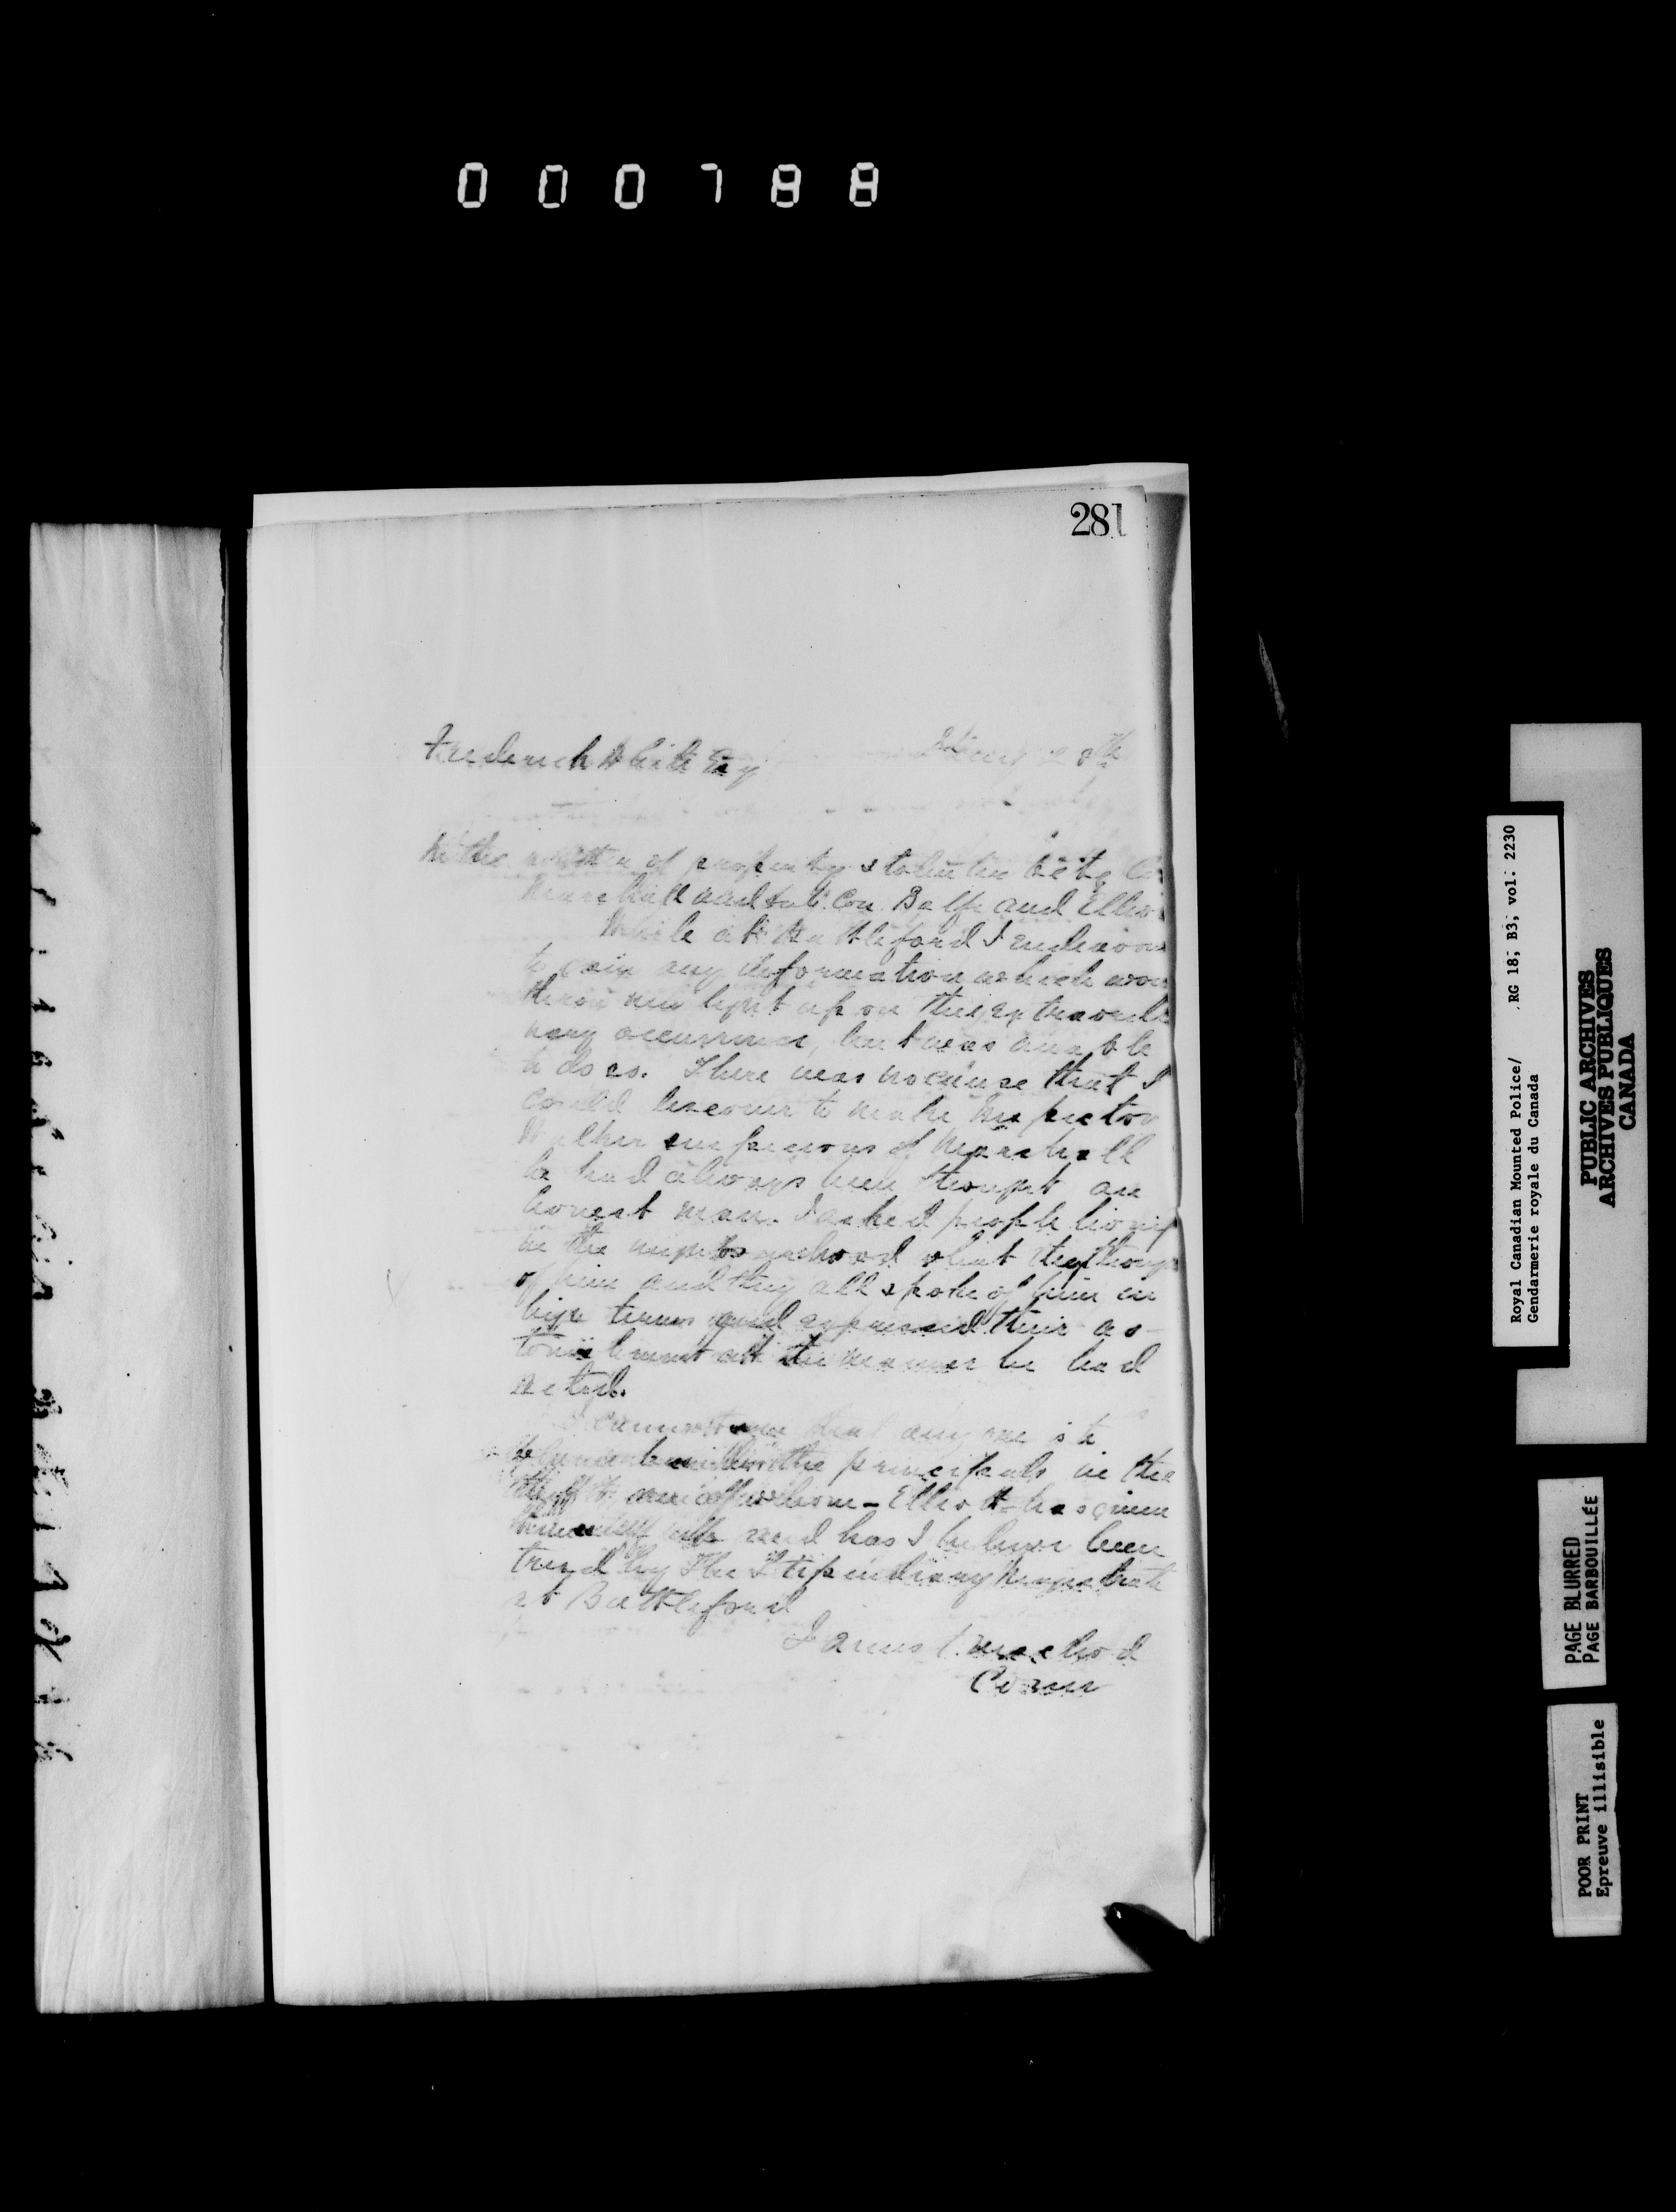 000788
281
Frederick White Esq
28th
In the matter of property stolen by
Marshall and sub. Con. Balfe and Ellio
While at Battleford I endeavou
to gain any information which wou
throw new light upon this extraordi
nary occurrence, but was unable
to do so. There was no cause that I
could discover to make Inspector
Walker suspicious of Marshall
he had always been thought an
honest man. I asked people living
in the neighbourhood what they though
of him and they all spoke of him in
high terms and expressed their as-
tonishment at the manner he had
acted.
I cannot see that any one is to
blame but the principals in the
theft one of whom - Elliott - has given
himself up and has I believe been
tried by The Stipendiary Magistrate
at Battleford
James F. Macleod
Comm
Royal Canadian Mounted Police/ RG 18; B3; vol: 2230
Gendarmerie royale du Canada
PUBLIC ARCHIVES
ARCHIVES PUBLIQUES
CANADA
PAGE BLURRED
PAGE BARBOUILLÉE
POOR PRINT
Epreuve illisible